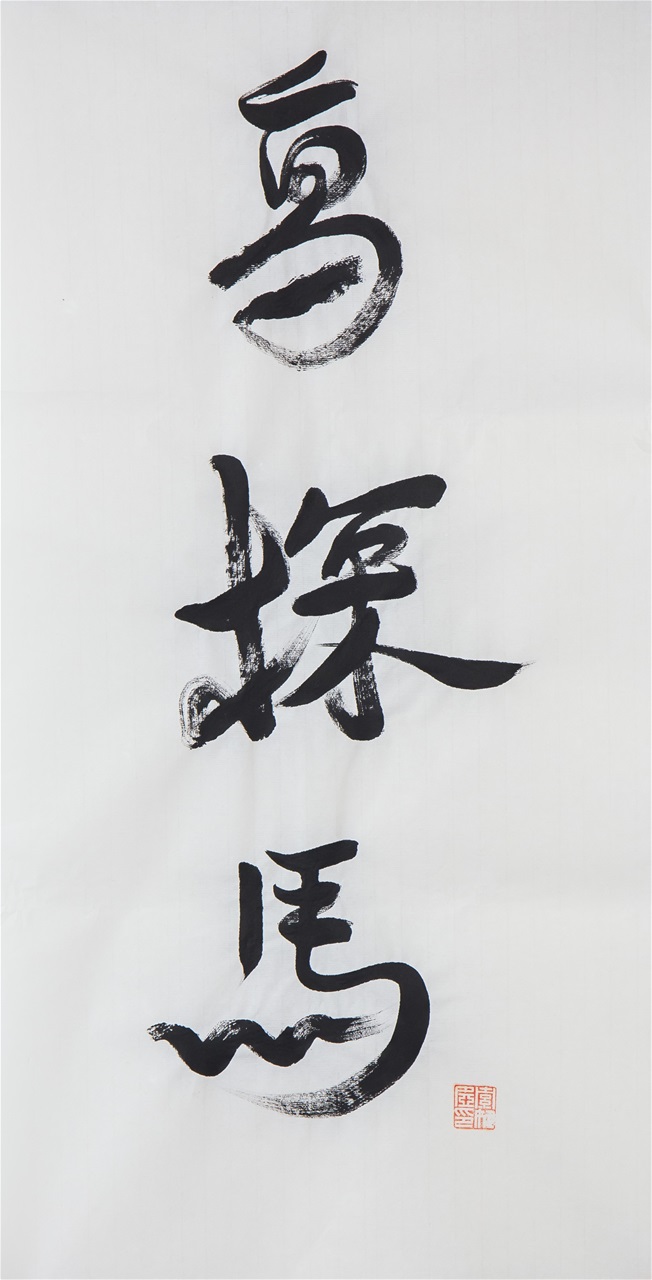 高探馬